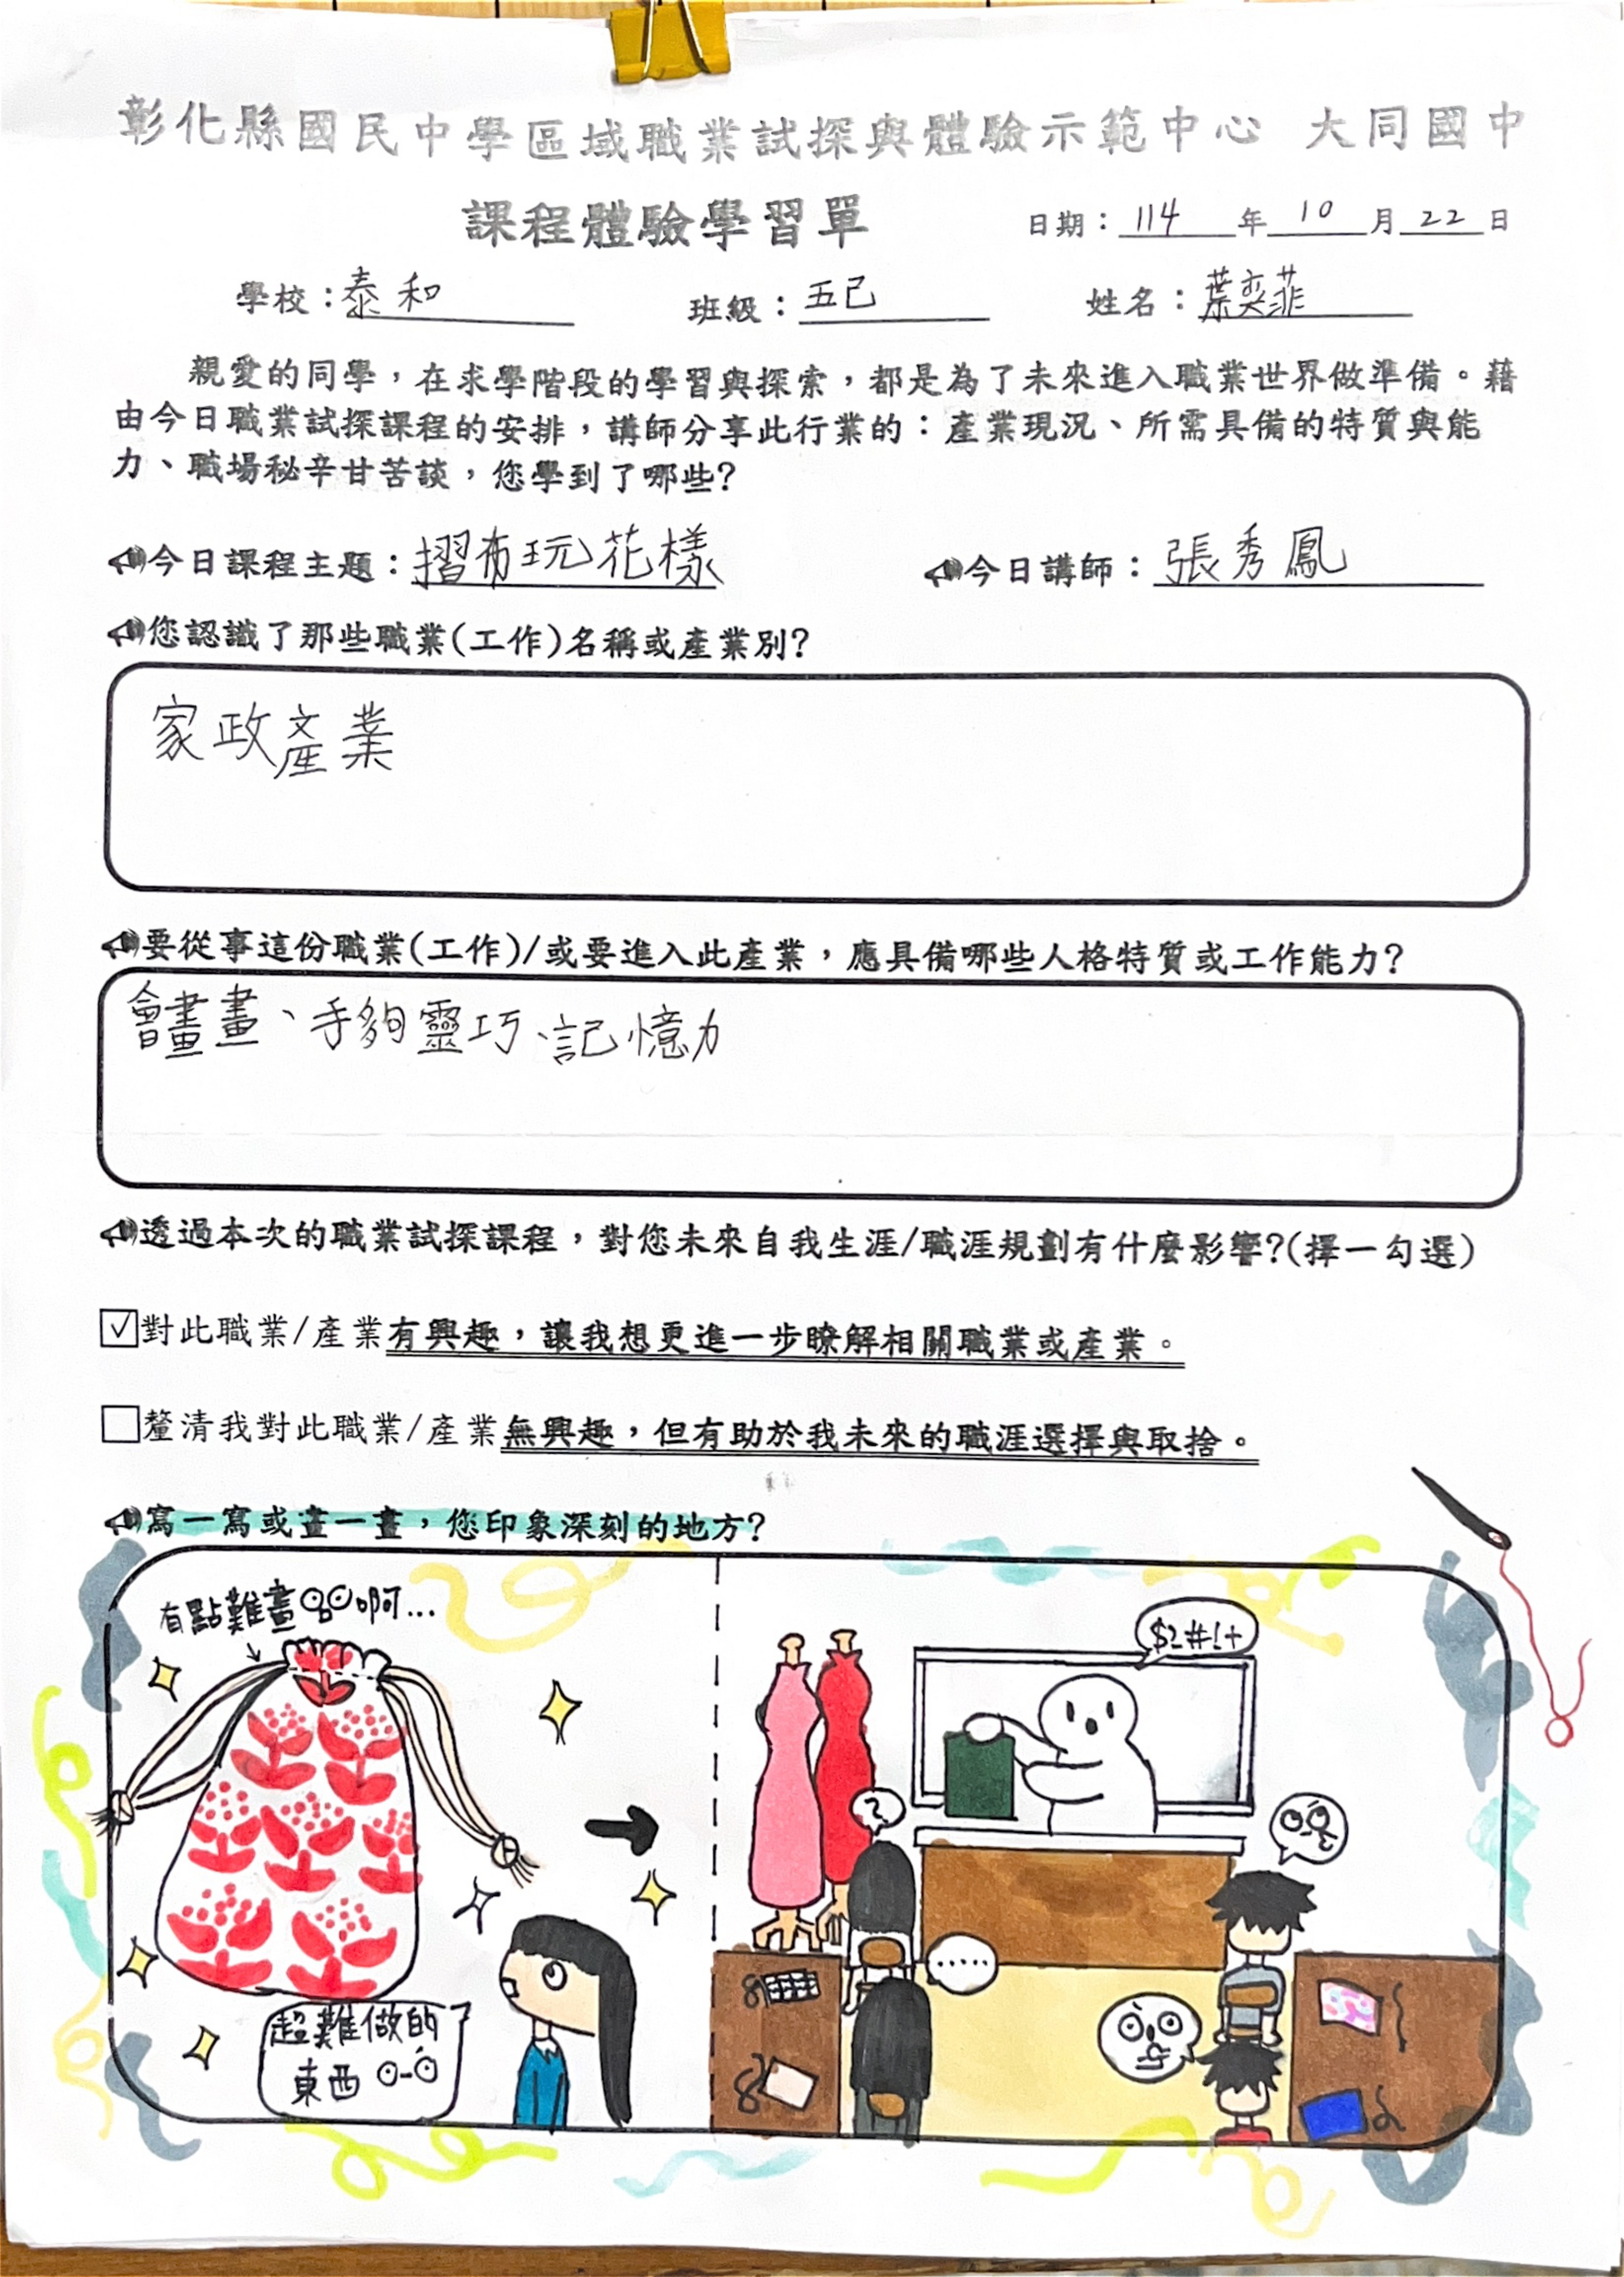 彰化縣國民中學區域職業試探與體驗示範中心 大同國中
課程體驗學習單
日期：114年10月22日
學校：泰和 班級：五己 姓名：葉奕菲
親愛的同學，在求學階段的學習與探索，都是為了未來進入職業世界做準備。藉
由今日職業試探課程的安排，講師分享此行業的：產業現況、所需具備的特質與能
力、職場秘辛甘苦談，您學到了哪些?
今日課程主題：摺布玩花樣 今日講師：張秀鳳
您認識了那些職業(工作)名稱或產業別?
家政產業
要從事這份職業(工作)/或要進入此產業，應具備哪些人格特質或工作能力?
會畫畫、手夠靈巧、記憶力
透過本次的職業試探課程，對您未來自我生涯/職涯規劃有什麼影響?(擇一勾選)
☑對此職業/產業有興趣，讓我想更進一步瞭解相關職業或產業。
☐釐清我對此職業/產業無興趣，但有助於我未來的職涯選擇與取捨。
寫一寫或畫一畫，您印象深刻的地方?
有點難畫啊...
$2#!+
?
......
超難做的
東西